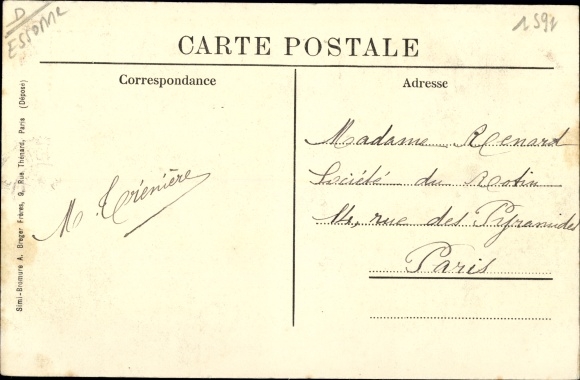 D
ESSONNE
1591
CARTE POSTALE
Correspondance
Adresse
Madame Renard
Société du Rotin
14, rue des Pyramides
Paris
M. Trénière
Simi-Bromure A. Breger Frères, 9, Rue Thénard, Paris (Déposé)